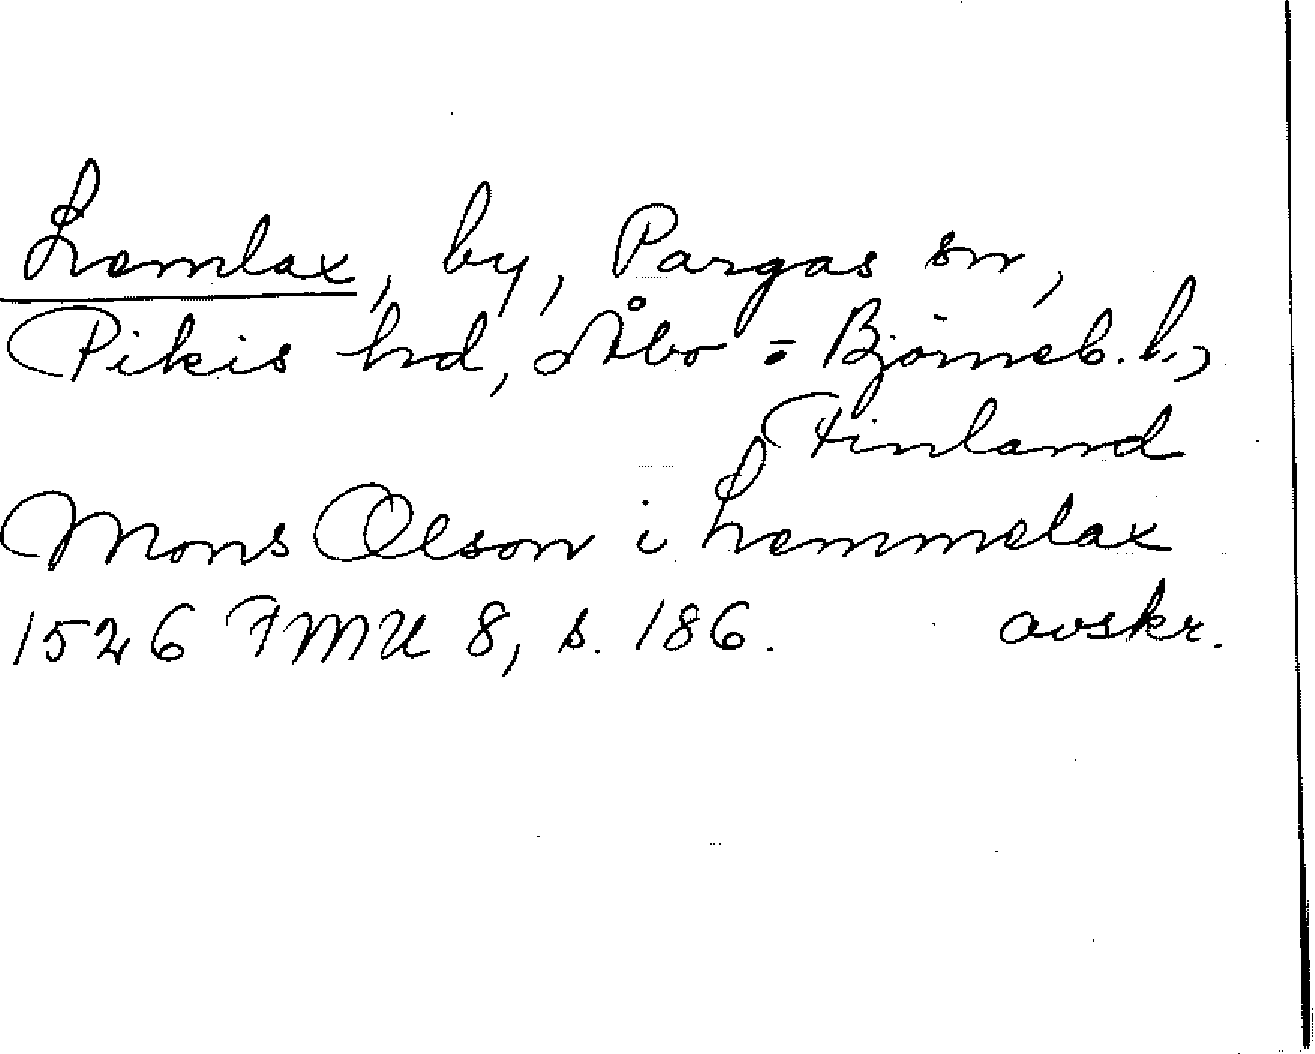 Lemlax, by, Pargas sn,
Pikis hd, Åbo-Björneb. l.,
Finland
Mons Olson i Lemmelax
1526 FMU 8, s. 186. avskr.